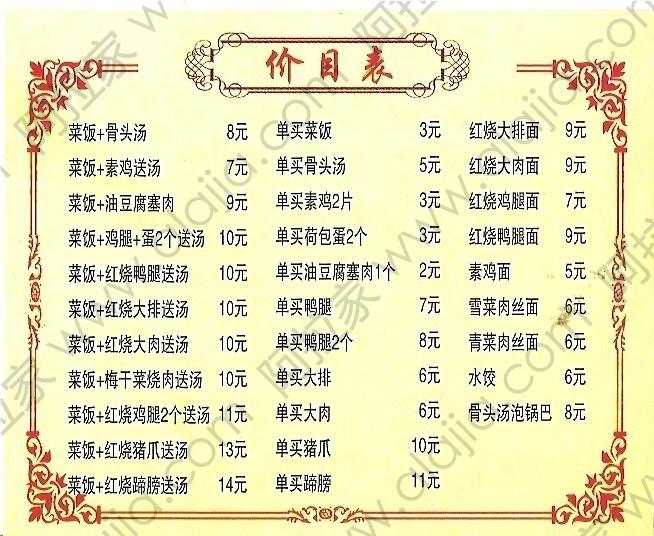 价目表
菜饭+骨头汤 8元
菜饭+素鸡送汤 7元
菜饭+油豆腐塞肉 9元
菜饭+鸡腿+蛋2个送汤 10元
菜饭+红烧鸭腿送汤 10元
菜饭+红烧大排送汤 10元
菜饭+红烧大肉送汤 10元
菜饭+梅干菜烧肉送汤 10元
菜饭+红烧鸡腿2个送汤 11元
菜饭+红烧猪爪送汤 13元
菜饭+红烧蹄膀送汤 14元
单买菜饭 3元
单买骨头汤 5元
单买素鸡2片 3元
单买荷包蛋2个 3元
单买油豆腐塞肉1个 2元
单买鸭腿 7元
单买鸭腿2个 8元
单买大排 6元
单买大肉 6元
单买猪爪 10元
单买蹄膀 11元
红烧大排面 9元
红烧大肉面 9元
红烧鸡腿面 7元
红烧鸭腿面 9元
素鸡面 5元
雪菜肉丝面 6元
青菜肉丝面 6元
水饺 6元
骨头汤泡锅巴 8元
阿拉家 www.alajia.com